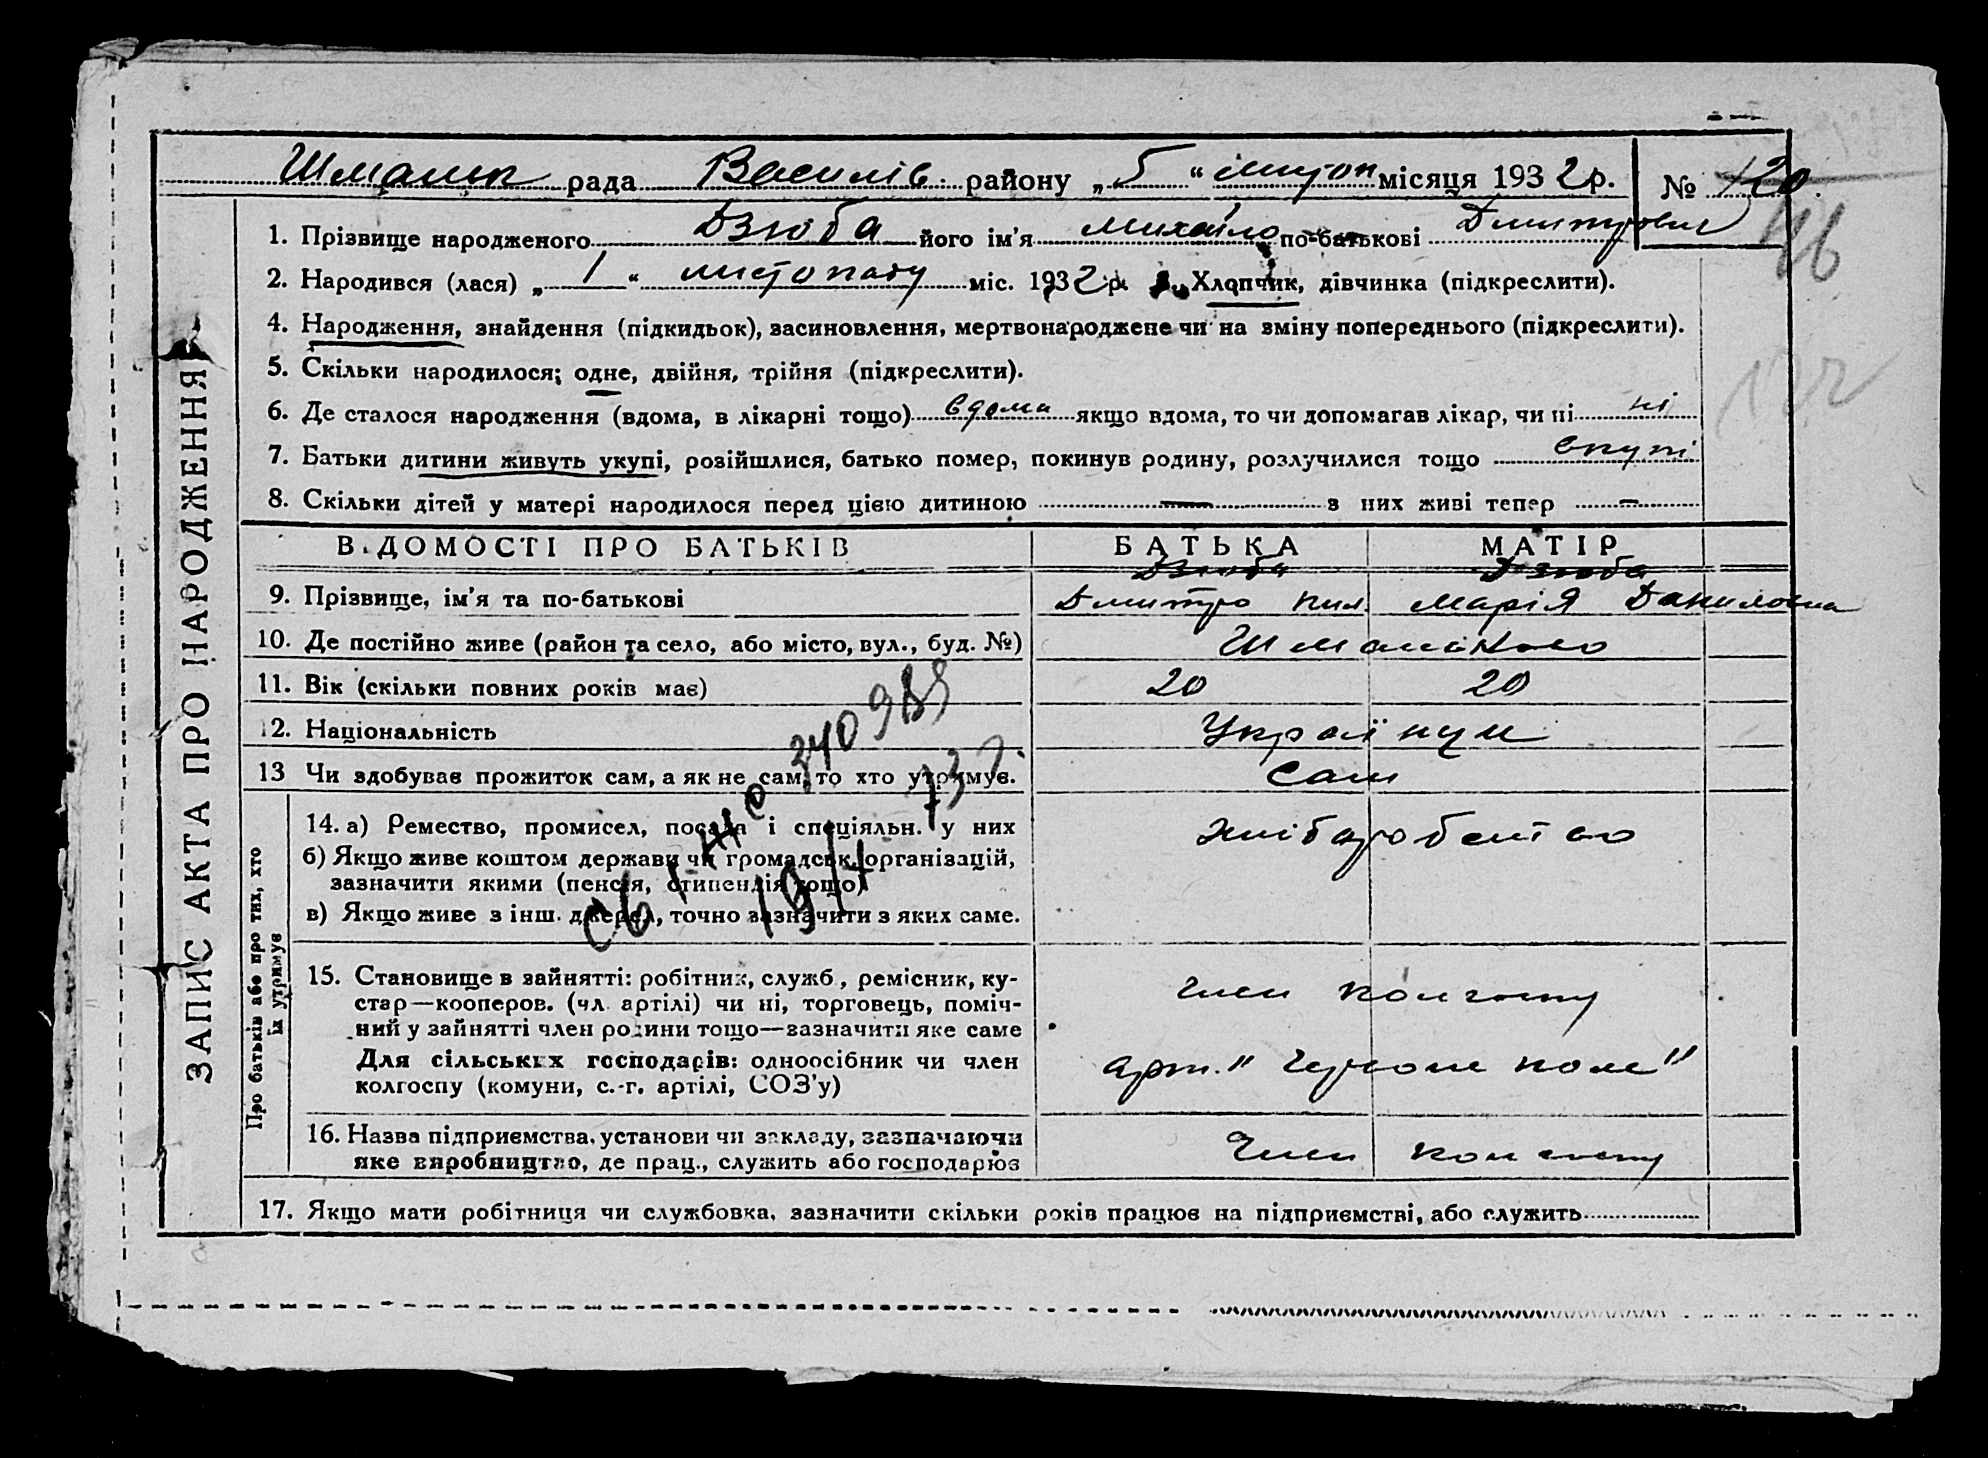 Шмальк рада Василів. району „5“ листоп місяця 1932 р. № 120
46
1. Прізвище народженого Дзюба його ім'я Михайло по-батькові Дмитрович
2. Народився (лася) „1“ листопаду міс. 1932 р. Хлопчик, дівчинка (підкреслити).
4. Народження, знайдення (підкидьок), засиновлення, мертвонароджене чи на зміну попереднього (підкреслити).
5. Скільки народилося; одне, двійня, трійня (підкреслити).
6. Де сталося народження (вдома, в лікарні тощо) вдома якщо вдома, то чи допомагав лікар, чи ні ні
7. Батьки дитини живуть укупі, розійшлися, батько помер, покинув родину, розлучилися тощо вкупі
8. Скільки дітей у матері народилося перед цією дитиною — з них живі тепер —
ЗАПИС АКТА ПРО НАРОДЖЕННЯ
ВІДОМОСТІ ПРО БАТЬКІВ БАТЬКА МАТІР
Дзюба Дзюба
9. Прізвище, ім'я та по-батькові Дмитро Марія Даниловна
10. Де постійно живе (район та село, або місто, вул., буд. №)
11. Вік (скільки повних років має) 20 20
12. Національність Українци
13 Чи здобував прожиток сам, а як не сам, то хто утримує. Сам
Про батьків або про тих, хто
їх утримує
14. а) Ремество, промисел, посада і спеціяльн. у них хліборобство
б) Якщо живе коштом держави чи громадськ. організацій,
зазначити якими (пенсія, стипендія тощо)
в) Якщо живе з інш. джерел, точно зазначити з яких саме.
15. Становище в зайнятті: робітник, служб., ремісник, ку-
стар—кооперов. (чл. артілі) чи ні, торговець, поміч- член колгоспу
ний у зайнятті член родини тощо—зазначити яке саме
Для сільських господарів: одноосібник чи член арт. "Червоне поле"
колгоспу (комуни, с.-г. артілі, СОЗ'у)
16. Назва підприємства, установи чи закладу, зазначаючи член колгоспу
яке виробництво, де прац., служить або господарює
17. Якщо мати робітниця чи службовка, зазначити скільки років працює на підприємстві, або служить